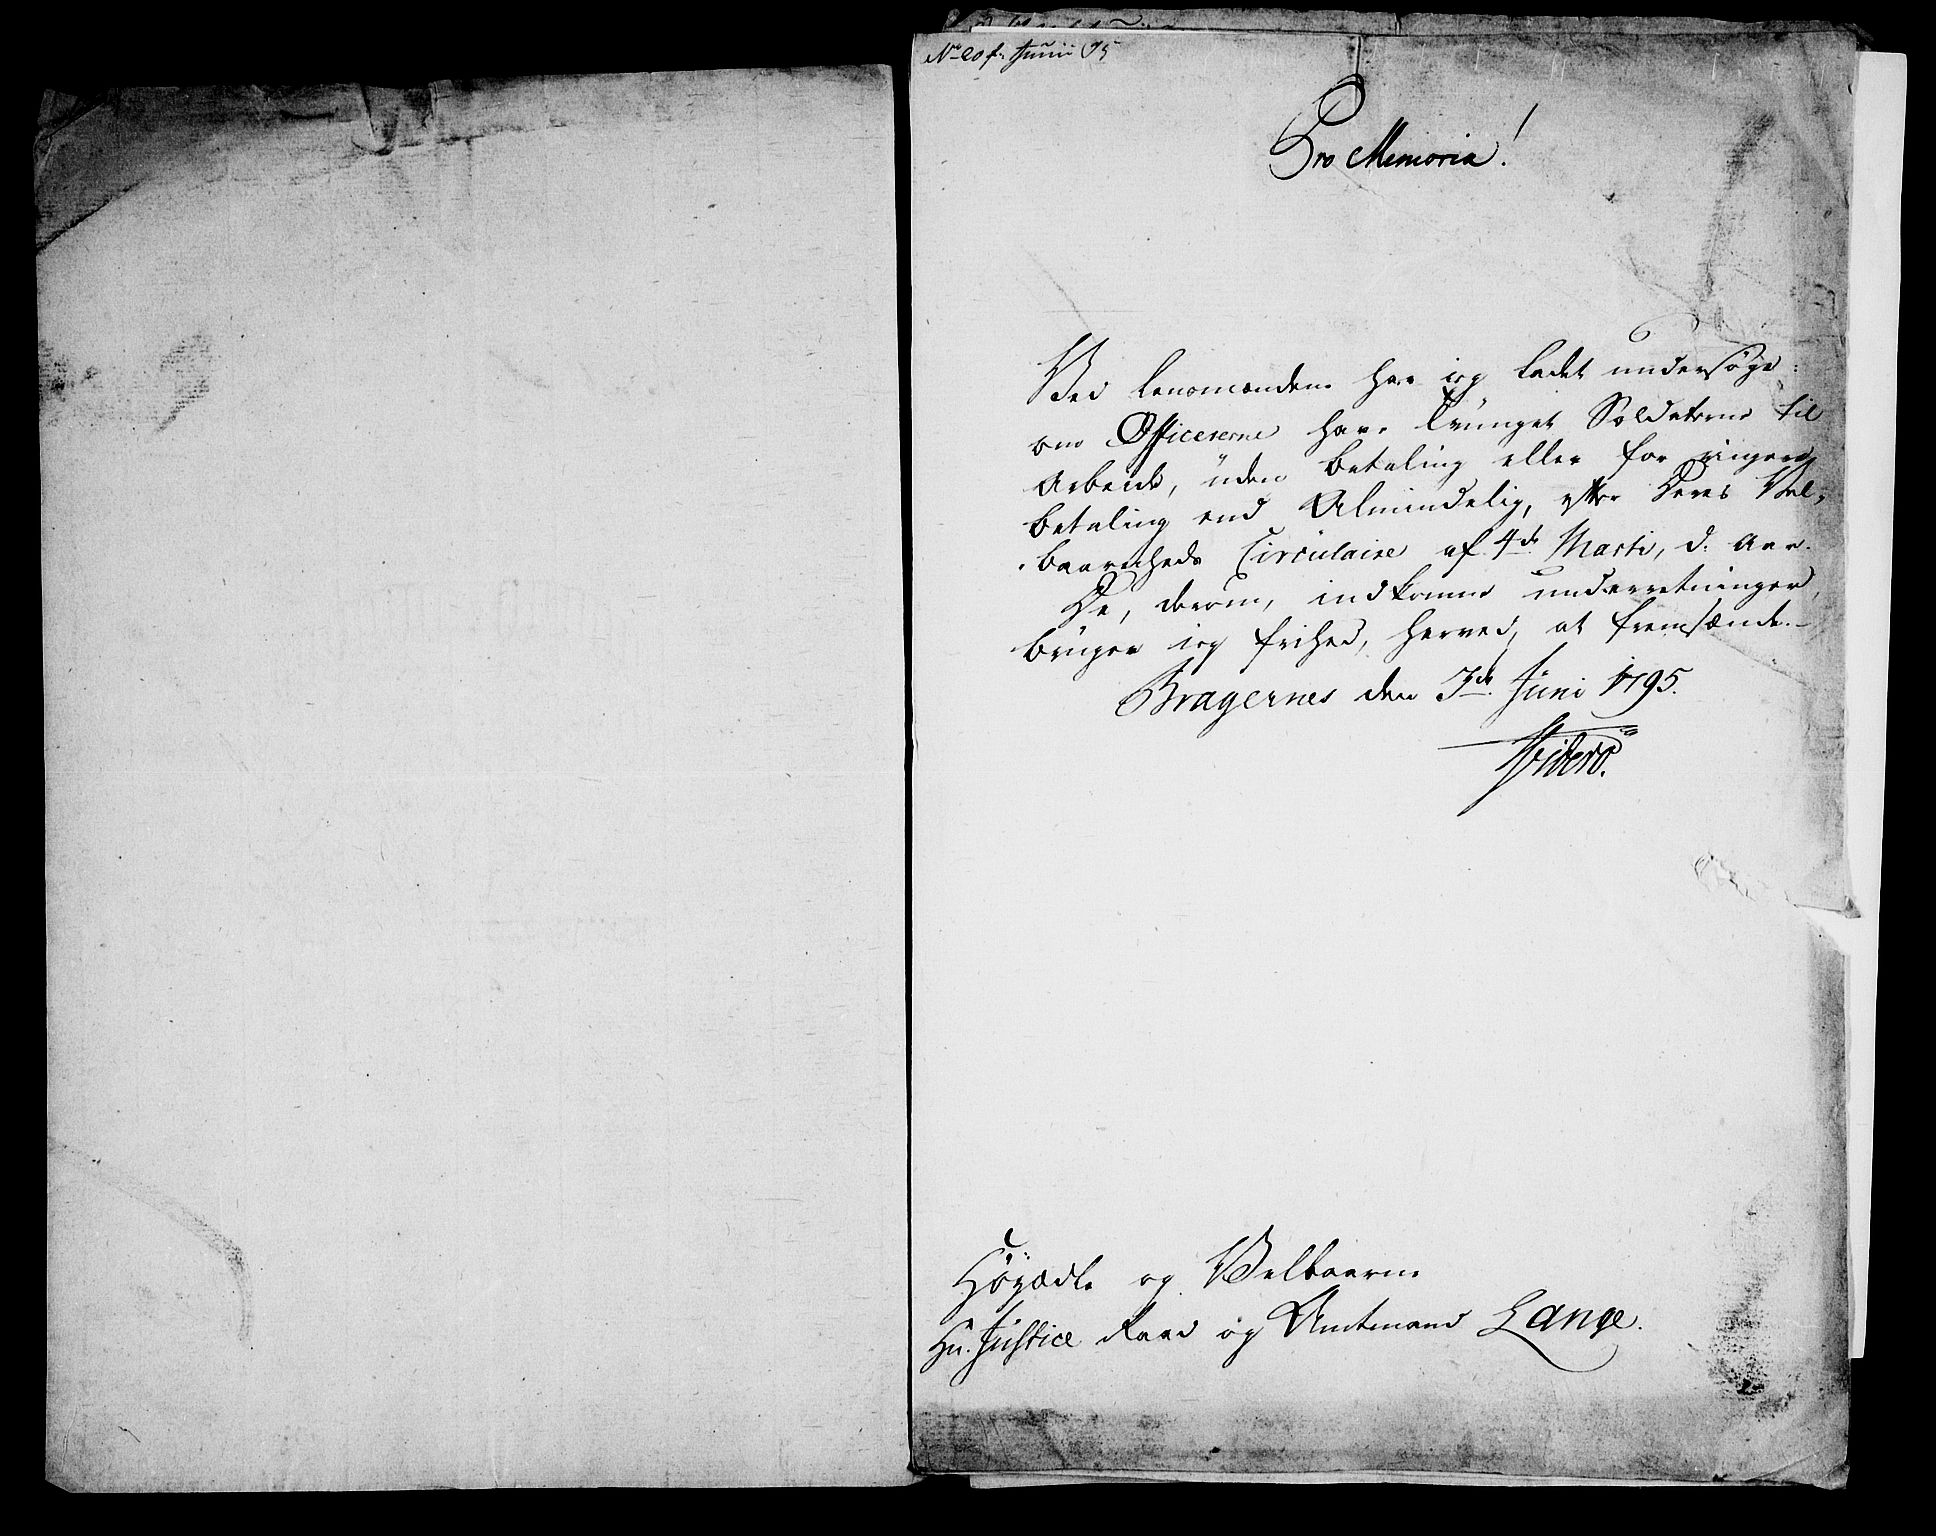 No 20 f. Junii 95
Pro Memoria!
Ved Lensmændene har jeg ladet undersøge:
om Officererne have tvunget Soldaterne til
Arbeide, uden betaling eller for ringere
betaling end Almindelig, efter Deres Vel-
baarenheds Circulaire af 4de Marti, d. Aar.
De, derom, indkomne underretninger,
bruger jeg frihed, herved, at fremsænde.-
Bragernes den 3de Juni 1795.
Høyædle og Velbaarne
Hr. Justice Raad og Amtmand Lange.